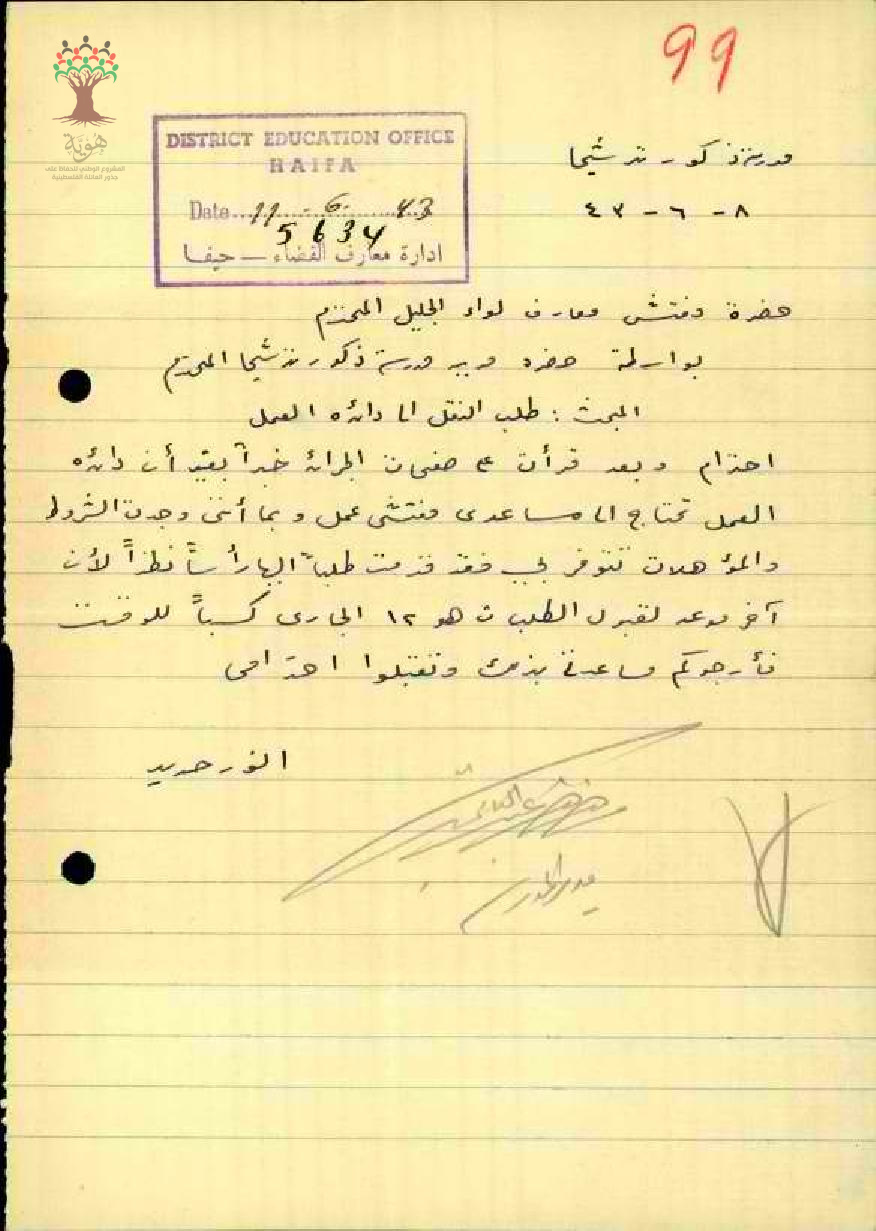 99
هُويَّة
المشروع الوطني للحفاظ على
جذور العائلة الفلسطينية
DISTRICT EDUCATION OFFICE
HAIFA
Date 11 - 6 - 43
5634
ادارة معارف القضاء — حيفا
مدرسة ذكور ترشيحا
٨ - ٦ - ٤٣
حضرة مفتش معارف لواء الجليل المحترم
بواسطة حضرة مدير مدرسة ذكور ترشيحا المحترم
المبحث : طلب النقل الى دائرة العمل
احترام وبعد قرأت على صفحات الجرائد خبراً يفيد أن دائرة
العمل تحتاج الى مساعدي مفتشي عمل وبما أنني وجدت الشروط
والمؤهلات تتوفر بي فقد قدمت طلباً اليها رأساً نظراً لأن
آخر موعد لقبول الطلبات هو ١٢ الجاري كسباً للوقت
فأرجوكم مساعدتي بذلك وتقبلوا احترامي
مدير المدرسة